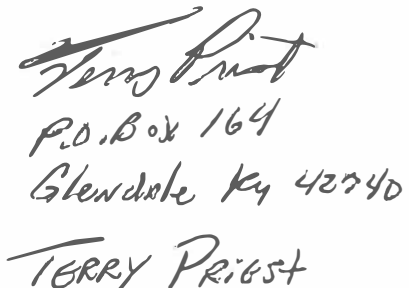 Terry Priest
P.O. Box 164
Glendale Ky 42740
TERRY PRIEST